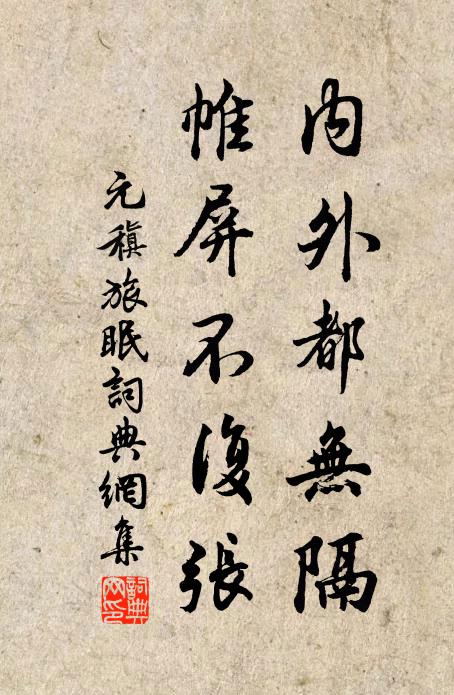 內外都無隔
帷屏不復張
元稹旅眠詞典網集
詞典
网印